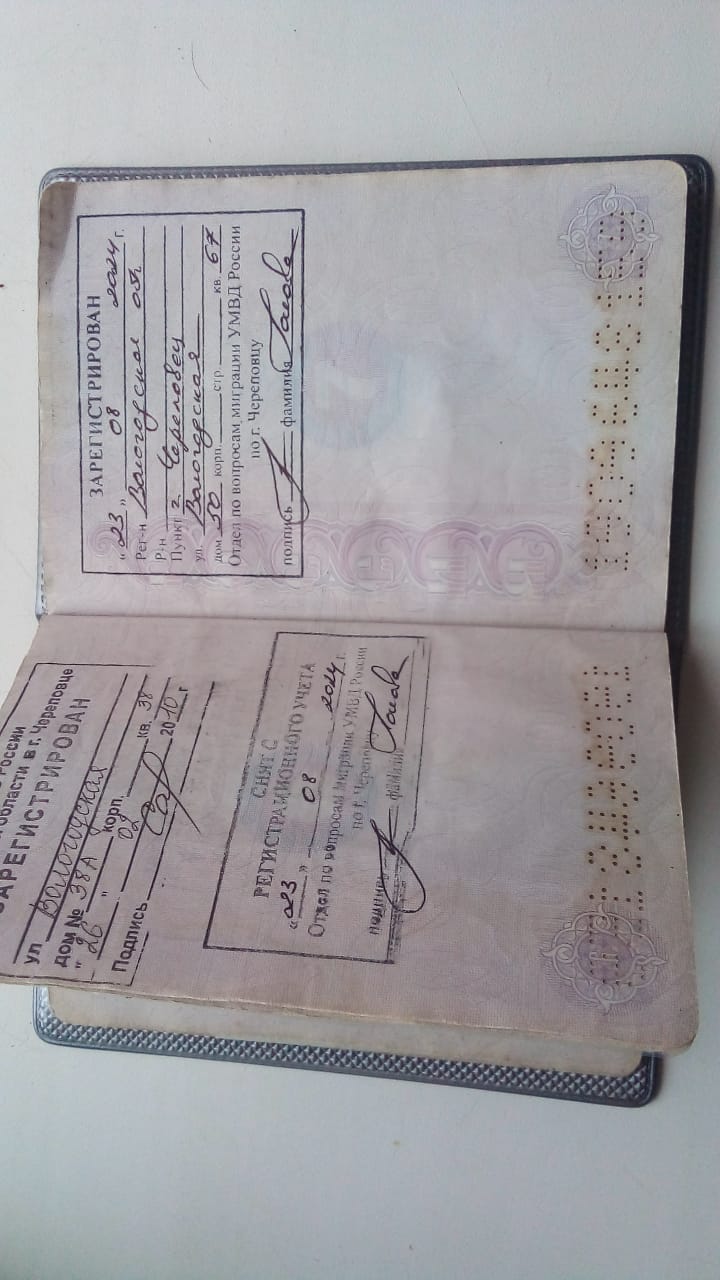 России
области в г. Череповце
ЗАРЕГИСТРИРОВАН
ул Вологодская
дом № 38А корп. кв. 38
"26" 02 2010 г
Подпись
СНЯТ С
РЕГИСТРАЦИОННОГО УЧЕТА
"23" 08 2024 г.
Отдел по вопросам миграции УМВД России
по г. Череповцу
подпись фамилия
ЗАРЕГИСТРИРОВАН
"23" 08 2024 г.
Рег-н Вологодская обл
Р-н
Пункт г. Череповец
ул. Вологодская
дом 50 корп. стр. кв. 67
Отдел по вопросам миграции УМВД России
по г. Череповцу
подпись фамилия